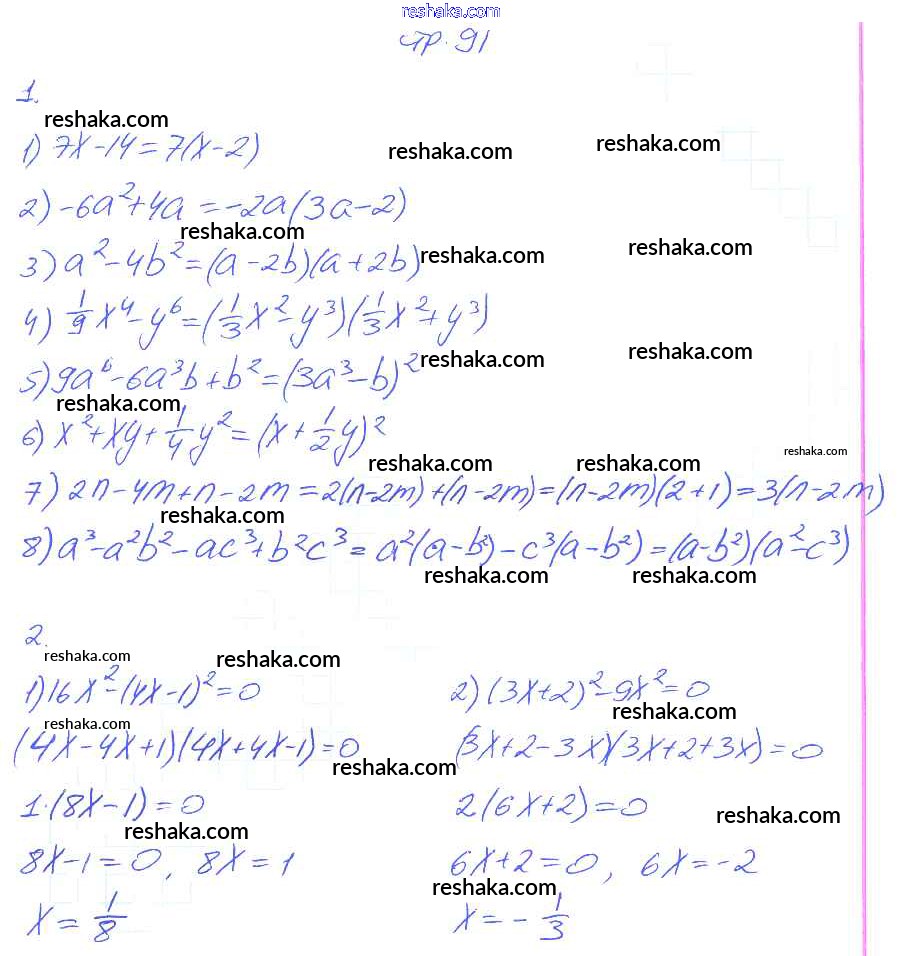 reshaka.com
стр. 91
1.
reshaka.com
1) 7x-14=7(x-2)
reshaka.com
reshaka.com
2) -6a²+4a=-2a(3a-2)
reshaka.com
3) a²-4b²=(a-2b)(a+2b)
reshaka.com
reshaka.com
4) 1/9 x⁴-y⁶=(1/3 x²-y³)(1/3 x²+y³)
5) 9a⁶-6a³b+b²=(3a³-b)²
reshaka.com
reshaka.com
reshaka.com
6) x²+xy+1/4 y²=(x+1/2 y)²
reshaka.com
reshaka.com
reshaka.com
7) 2n-4m+n-2m=2(n-2m)+(n-2m)=(n-2m)(2+1)=3(n-2m)
reshaka.com
8) a³-a²b²-ac³+b²c³=a²(a-b²)-c³(a-b²)=(a-b²)(a²-c³)
reshaka.com
reshaka.com
2.
reshaka.com
reshaka.com
1) 16x²-(4x-1)²=0
reshaka.com
(4x-4x+1)(4x+4x-1)=0
reshaka.com
1·(8x-1)=0
reshaka.com
8x-1=0, 8x=1
x=1/8
2) (3x+2)²-9x²=0
reshaka.com
(3x+2-3x)(3x+2+3x)=0
2(6x+2)=0
reshaka.com
6x+2=0, 6x=-2
reshaka.com
x=-1/3